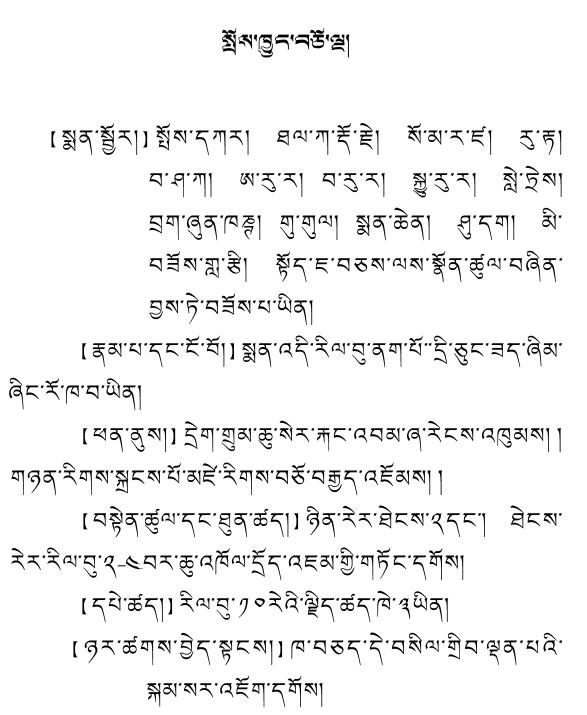 སྤོས་ཁྱུང་བཅོ་ལྔ།
[སྨན་སྦྱོར།] སྤོས་དཀར། ཐལ་ཀ་རྡོ་རྗེ། སོ་མ་ར་ཛ། རུ་རྟ།
བ་ཤ་ཀ། ཨ་རུ་ར། བ་རུ་ར། སྐྱུ་རུ་ར། སླེ་ཏྲེས།
བྲག་ཞུན་ཁཎྜ། གུ་གུལ། སྨན་ཆེན། ཤུ་དག། མི་
བཟོས་གླ་རྩི། སྟོད་ཇ་བཅས་ལས་སྣོན་ཚུལ་བཞིན་
བྱས་ཏེ་བཟོས་པ་ཡིན།
[རྣམ་པ་དང་ངོ་བོ།] སྨན་འདི་རིལ་བུ་ནག་པོ་དྲི་ཅུང་ཟད་ཞིམ་
ཞིང་རོ་ཁ་བ་ཡིན།
[ཕན་ནུས།] དྲེག་གྲུམ་ཆུ་སེར་རྐང་འབམ་ཞ་རེངས་འཁུམས། །
གཉན་རིགས་སྐྲངས་པོ་མཛེ་རིགས་བཅོ་བརྒྱད་འཇོམས། །
[བསྟེན་ཚུལ་དང་ཐུན་ཚད།] ཉིན་རེར་ཐེངས་༢དང་། ཐེངས་
རེར་རིལ་བུ་༢-༤བར་ཆུ་འཁོལ་དྲོད་འཇམ་གྱི་གཏོང་དགོས།
[དཔེ་ཚད།] རིལ་བུ་༡༠རེའི་ལྗིད་ཚད་ཁེ་༣ཡིན།
[ཉར་ཚགས་བྱེད་སྟངས།] ཁ་བཅད་དེ་བསིལ་གྲིབ་ལྡན་པའི་
སྐམ་སར་འཇོག་དགོས།